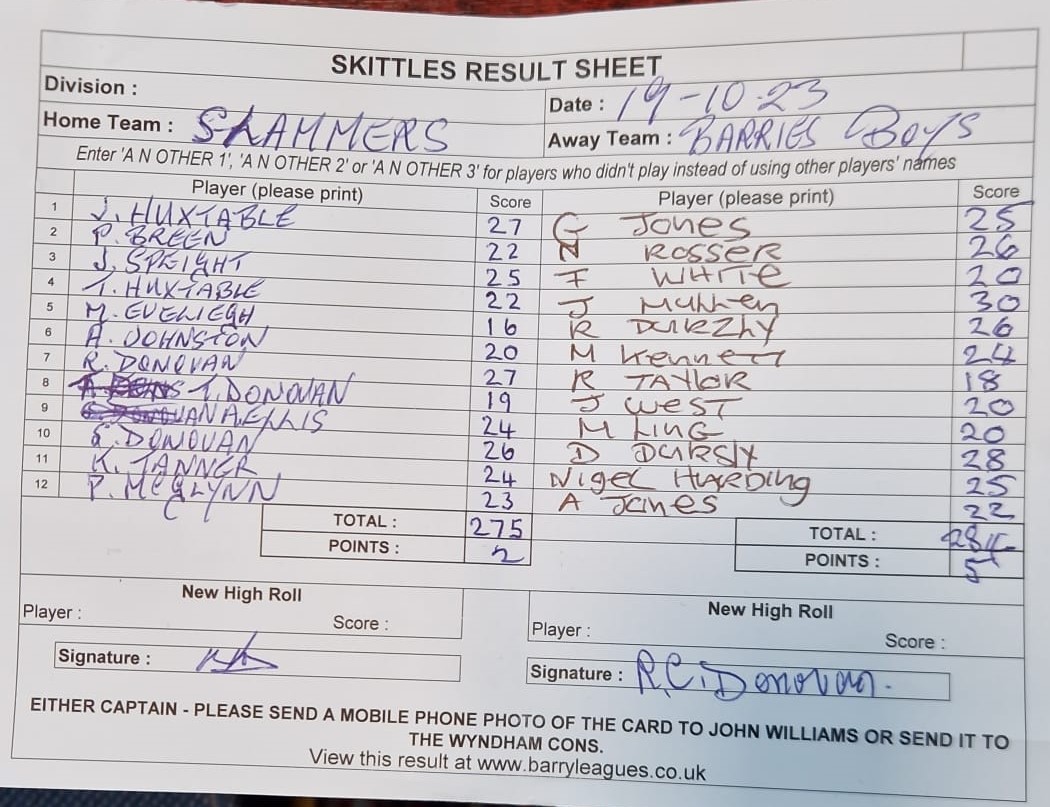 SKITTLES RESULT SHEET
Division : Date : 19-10-23
Home Team : SLAMMERS Away Team : BARRIES BOYS
Enter 'A N OTHER 1', 'A N OTHER 2' or 'A N OTHER 3' for players who didn't play instead of using other players' names
Player (please print) Score Player (please print) Score
1 J. HUXTABLE 27 G Jones 25
2 P. BREEN 22 N ROSSER 26
3 J. SPEIGHT 25 F WHITE 20
4 T. HUXTABLE 22 J Mullen 30
5 M. EVELIEGH 16 R 26
6 A. JOHNSTON 20 M Kennett 24
7 R. DONOVAN 27 R TAYLOR 18
8 T. DONOVAN 19 J WEST 20
9 A. ELLIS 24 M LING 20
10 S. DONOVAN 26 D 28
11 K. TANNER 24 Nigel Harding 25
12 P. McGLYNN 23 A James 22
TOTAL : 275 TOTAL : 284
POINTS : 2 POINTS : 5
New High Roll New High Roll
Player : Score : Player : Score :
Signature : Signature : R.C. Donovan.
EITHER CAPTAIN - PLEASE SEND A MOBILE PHONE PHOTO OF THE CARD TO JOHN WILLIAMS OR SEND IT TO
THE WYNDHAM CONS.
View this result at www.barryleagues.co.uk